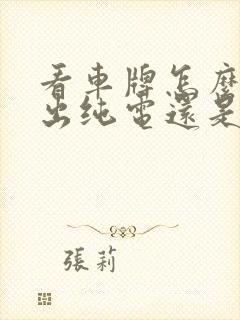 看車牌怎麽
出纯電還是
張莉